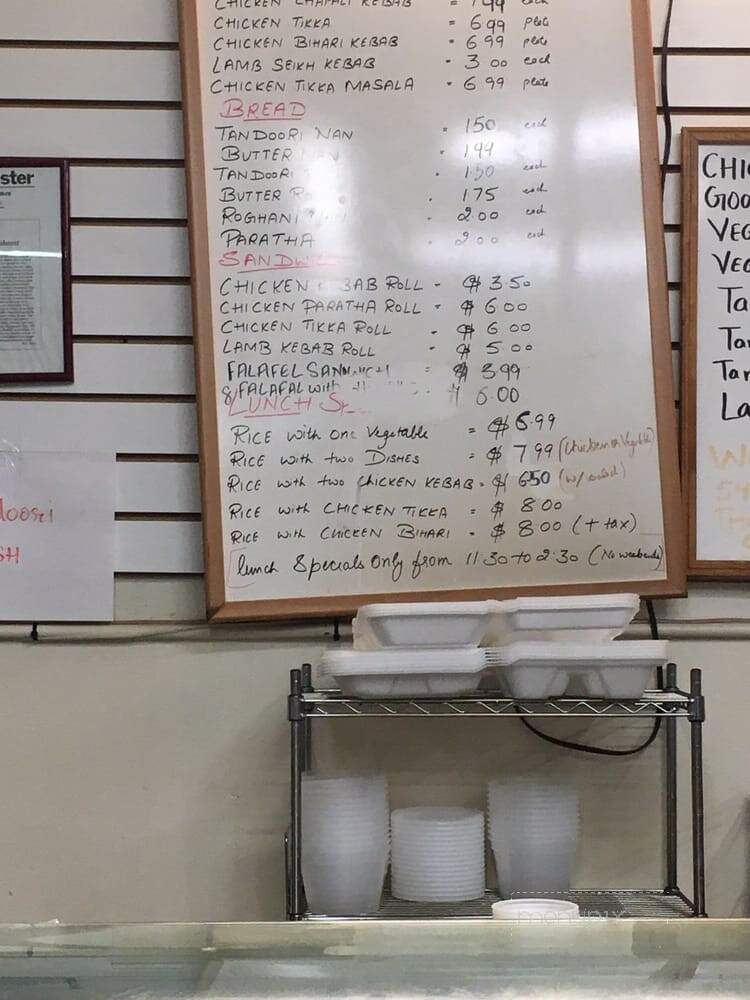 CHICKEN CHAPALI KEBAB = 1.99 each
CHICKEN TIKKA = 6.99 plate
CHICKEN BIHARI KEBAB = 6.99 plate
LAMB SEIKH KEBAB - 3.00 each
CHICKEN TIKKA MASALA = 6.99 plate
BREAD
TANDOORI NAN = 1.50 each
BUTTER NAN - 1.99
TANDOORI - 1.50 each
BUTTER - 1.75 each
ROGHANI - 2.00 each
PARATHA - 2.00 each
SANDWI
CHICKEN BAB ROLL - $ 3.50
CHICKEN PARATHA ROLL = $ 6.00
CHICKEN TIKKA ROLL - $ 6.00
LAMB KEBAB ROLL = $ 5.00
FALAFEL SANDWICH = $ 3.99
& FALAFAL with $ 6.00
LUNCH
RICE with one Vegetable = $ 6.99
RICE with two DISHES = $ 7.99 (Chicken or Vegetable)
RICE with two CHICKEN KEBAB = $ 6.50 (w/ salad)
RICE with CHICKEN TIKKA = $ 8.00
RICE with CHICKEN BIHARI = $ 8.00 (+ tax)
lunch Specials Only from 11:30 to 2:30 (No weekends)
ster
doori
SH
CHIC
GOO
VEG
VEG
Ta
Tan
Tan
La
W
54
TH